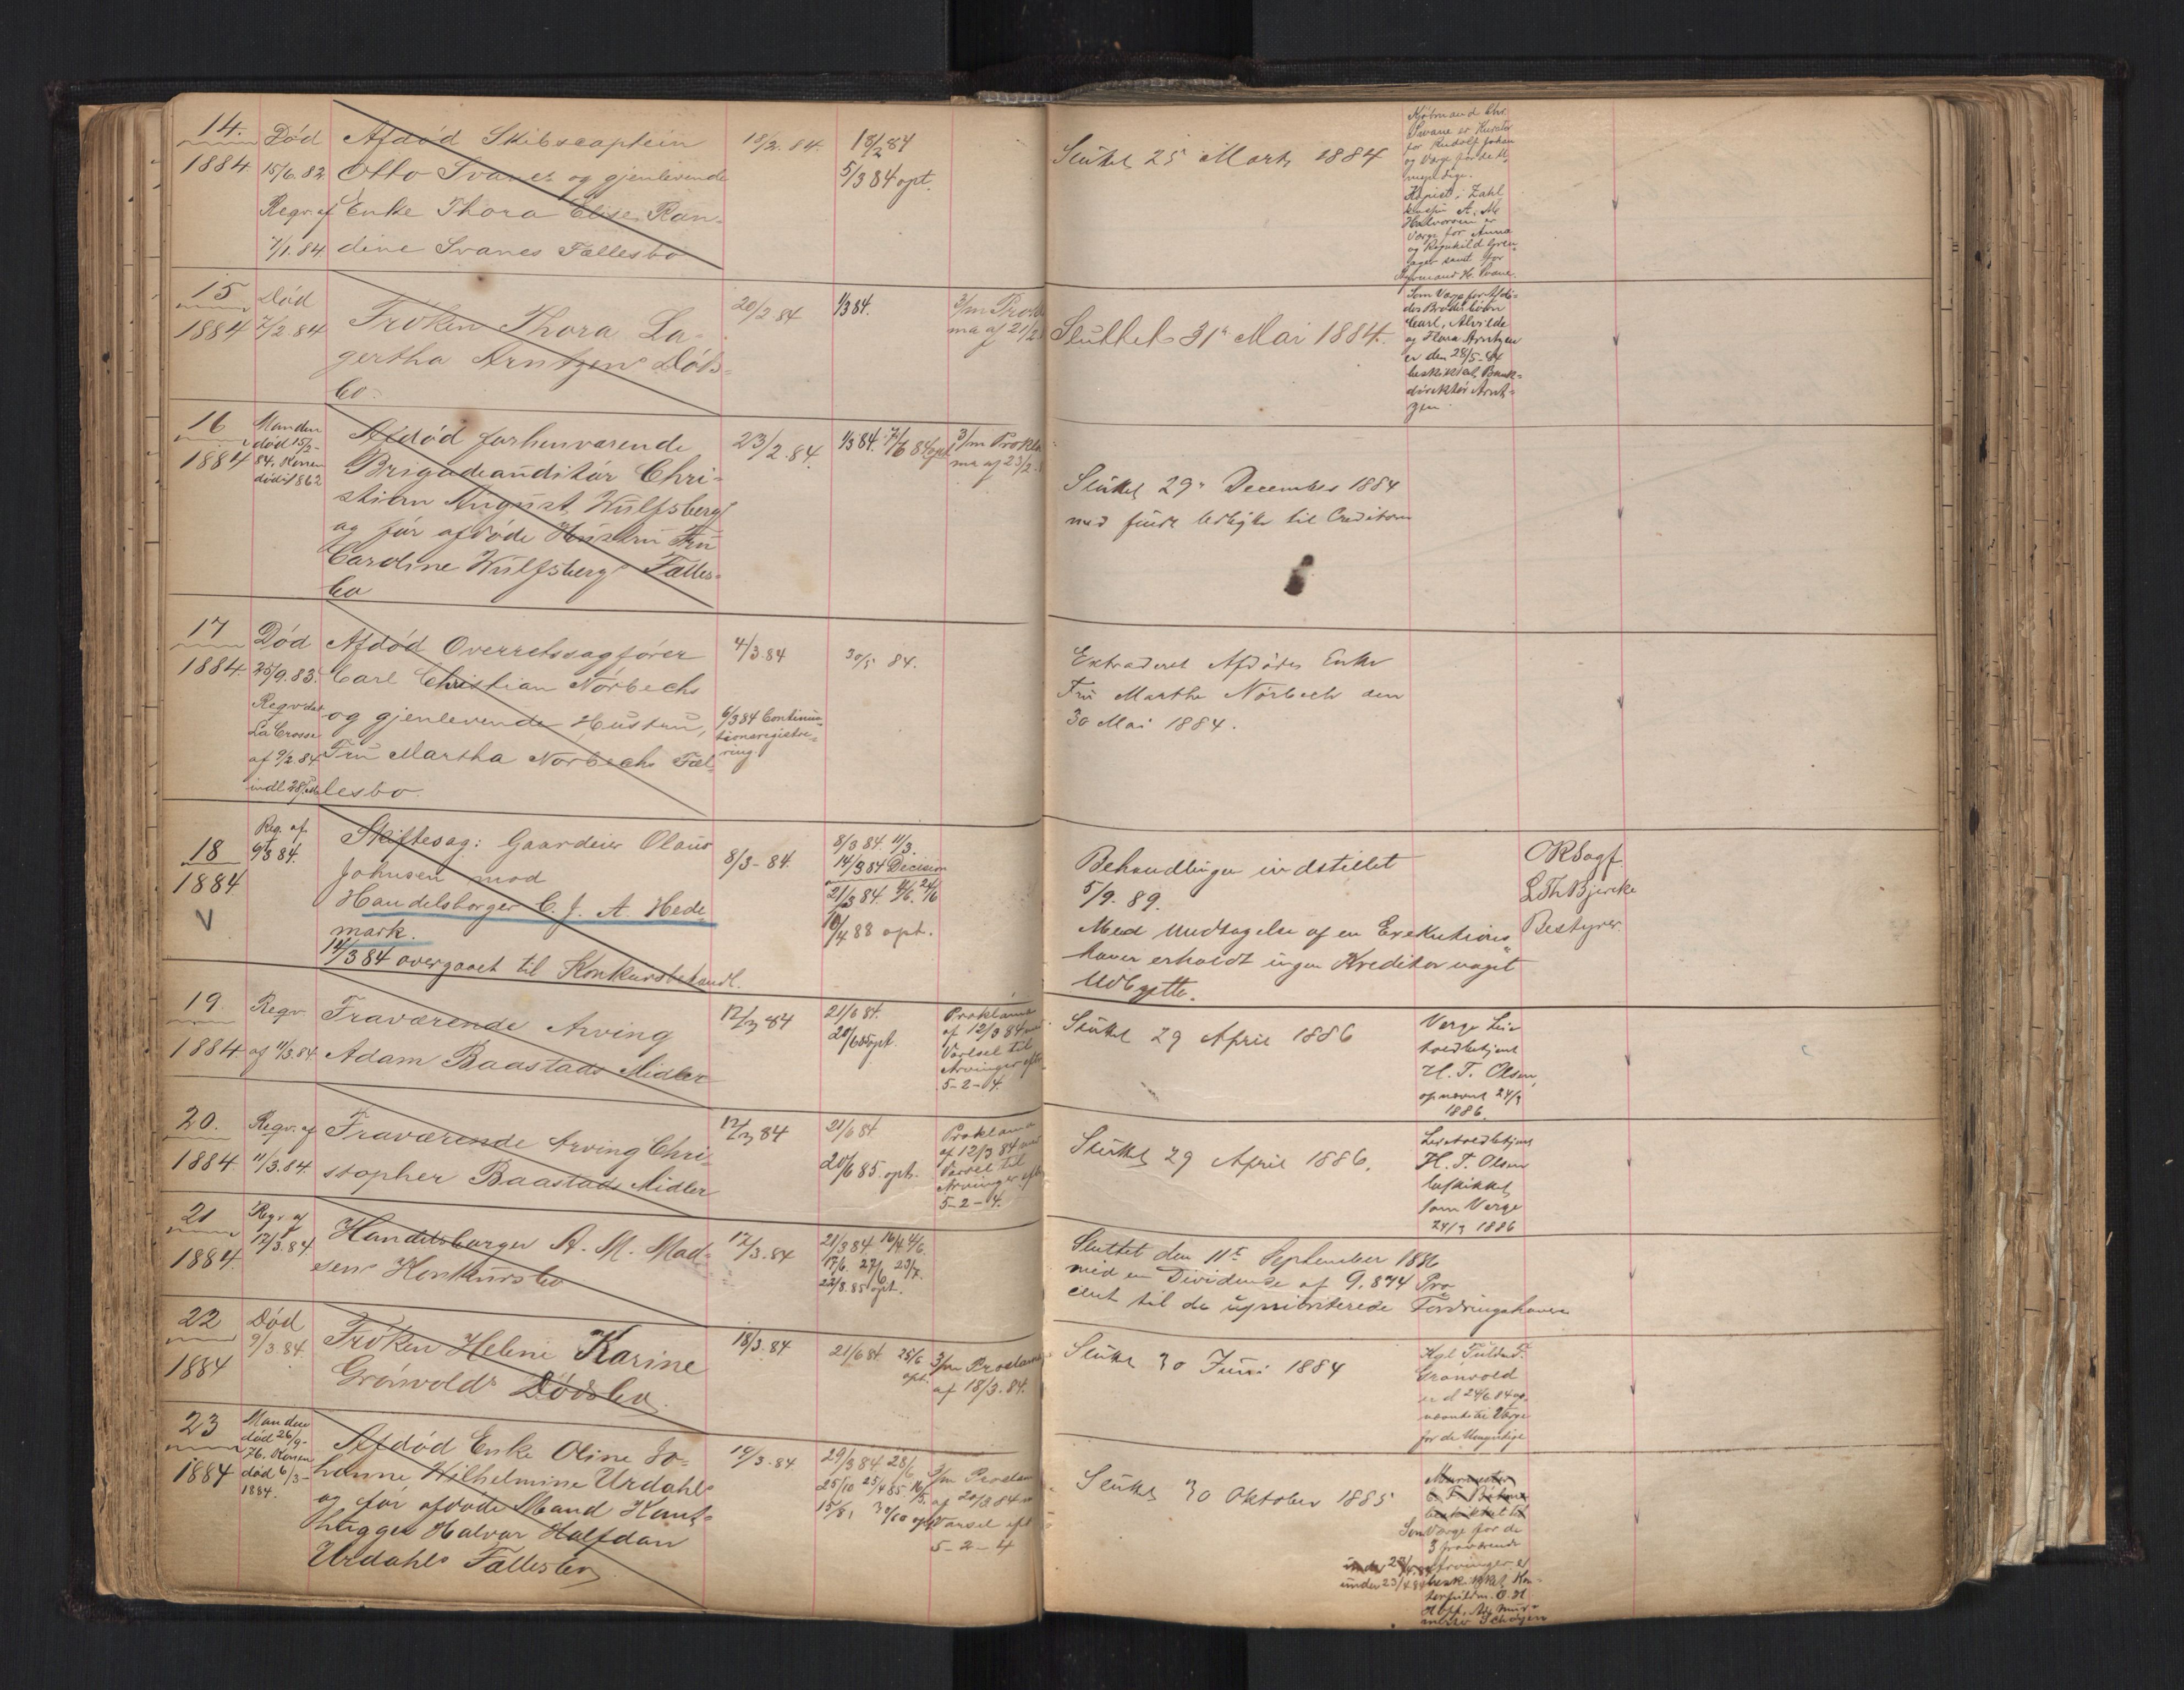 14.
1884.
Død
15/6.82
Reqv. af
7/1.84.
Afdød Skibscaptein
Otto Svanes og gjenlevende
Enke Thora Elise Ran-
dine Svanes Fællesbo
18/2.84.
18/2 84
5/3 84 opt.
Sluttet 25 Marts 1884
Kjøbmand Chr.
Svane er Kurator
for Rudolf Johan
og Værge for de U-
myndige.
Kopist i Zahl
A. M.
Halvorsen er
Værge for Anna
og Ragnhild Gren-
sager samt for
H. Svane.
15
1884
Død
7/2.84
Frøken Thora La-
gertha Arntzens Døds-
bo.
20/2 84
1/3 84.
3/m Prokla
ma af 21/2
Sluttet 31te Mai 1884.
Som Værge for Afdø-
des Broderbørn
Carl, Alvilde
og Flora Arntzen
er den 28/5-84
beskikket Bank-
direktør Arnt-
zen
16
1884
Manden
død 15/2-
84. Konen
død 1862
Afdød forhenværende
Brigadeauditør Chri-
stian August Wulfsberg
og før afdøde Hustru Fru
Caroline Wulfsbergs Fælles-
bo
23/2.84.
1/3 84. 7/6 84 opt
3/m Prokla
ma af 23/2-
Sluttet 29de December 1884
med fuldt Udbytte til Creditorer
17
1884.
Død
25/9.83.
Reqv dat
La Crosse
af 9/2.84
indl 28/
Afdød Overretssagfører
Carl Christian Nørbechs
og gjenlevende Hustru,
Fru Martha Nørbechs Fæl-
lesbo.
4/3.84
6/3 84 Continua-
tionsregistre-
ring.
30/5 84.
Extraderet Afdødes Enke
Fru Marthe Nørbech den
30 Mai 1884.
18
1884
V
Reg. af
9/3 84.
Skiftesag: Gaardeier Olaus
Johnsen mod
Handelsborger C. J. A. Hede-
mark.
14/3 84 overgaaet til Konkursbehandl.
8/3-84.
8/3 84. 11/3.
14/3 84 Decision
21/3 84. 4/6. 24/6
10/4 88 opt.
Behandlingen indstillet
5/9. 89.
Med Undtagelse af en Exekutions-
haver erholdt ingen Kreditor noget
Udbytte.
ORSagf.
L Th Bjercke
Bestyrer.
19.
1884
Reqv.
af 11/3.84
Fraværende Arving
Adam Baastads Midler
12/3 84
21/6 84.
20/6 85 opt.
Proklama
af 12/3 84 med
Varsel til
Arvinger efter
5-2-4.
Sluttet 29 April 1886
Værge Lei-
H. T. Olsen,
opnævnt 24/3
1886.
20.
1884
Reqv. af
11/3.84.
Fraværende Arving Chri-
stopher Baastads Midler
12/3 84
21/6 84
20/6 85. opt.
Proklama
af 12/3 84 med
Varsel til
Arvinger efter
5-2-4.
Sluttet 29 April 1886.
H. T. Olsen
beskikket
som Værge
24/3 1886
21
1884.
Reqv. af
12/3.84
Handelsborger A. M. Mad-
sens Konkursbo
17/3.84
21/3 84 16/4 4/6.
17/6. 27/6 23/7.
22/8.85 opt.
Sluttet den 11te September 1886
med en Dividende af 9,874 Pro-
cent til de uprioriterede Fordringshavere
22
1884
Død
9/3.84.
Frøken Helene Karine
Grønvolds Dødsbo.
18/3.84
21/6 84. 25/6
opt.
3/m Proclama
af 18/3.84.
Sluttet 30 Juni 1884
Kgl. Fuldm.
Grønvold
er d 24/6 84 op-
nævnt til Værge
for de Umyndige
23
1884
Manden
død 26/9-
76. Konen
død 6/3-
1884.
Afdød Enke Oline Jo-
hanne Wilhelmine Urdahls
og før afdøde Mand Kant-
hugger Halvor Halfdan
Urdahls Fællesbo
19/3.84.
29/3 84 28/6
25/10 25/4 85 10/5.
15/8, 30/10 opt
3/m Proclam
af 20/3.84 m
Varsel eft
5-2-4
Sluttet 30 Oktober 1885
Murmester
beskikket til
Som Værge for de
3 fraværende
Arvinger er
under 23/4.84 beskikket Kon-
torfuldm. O. H.
Hoff, Adj. Mur-
mester Schøyen